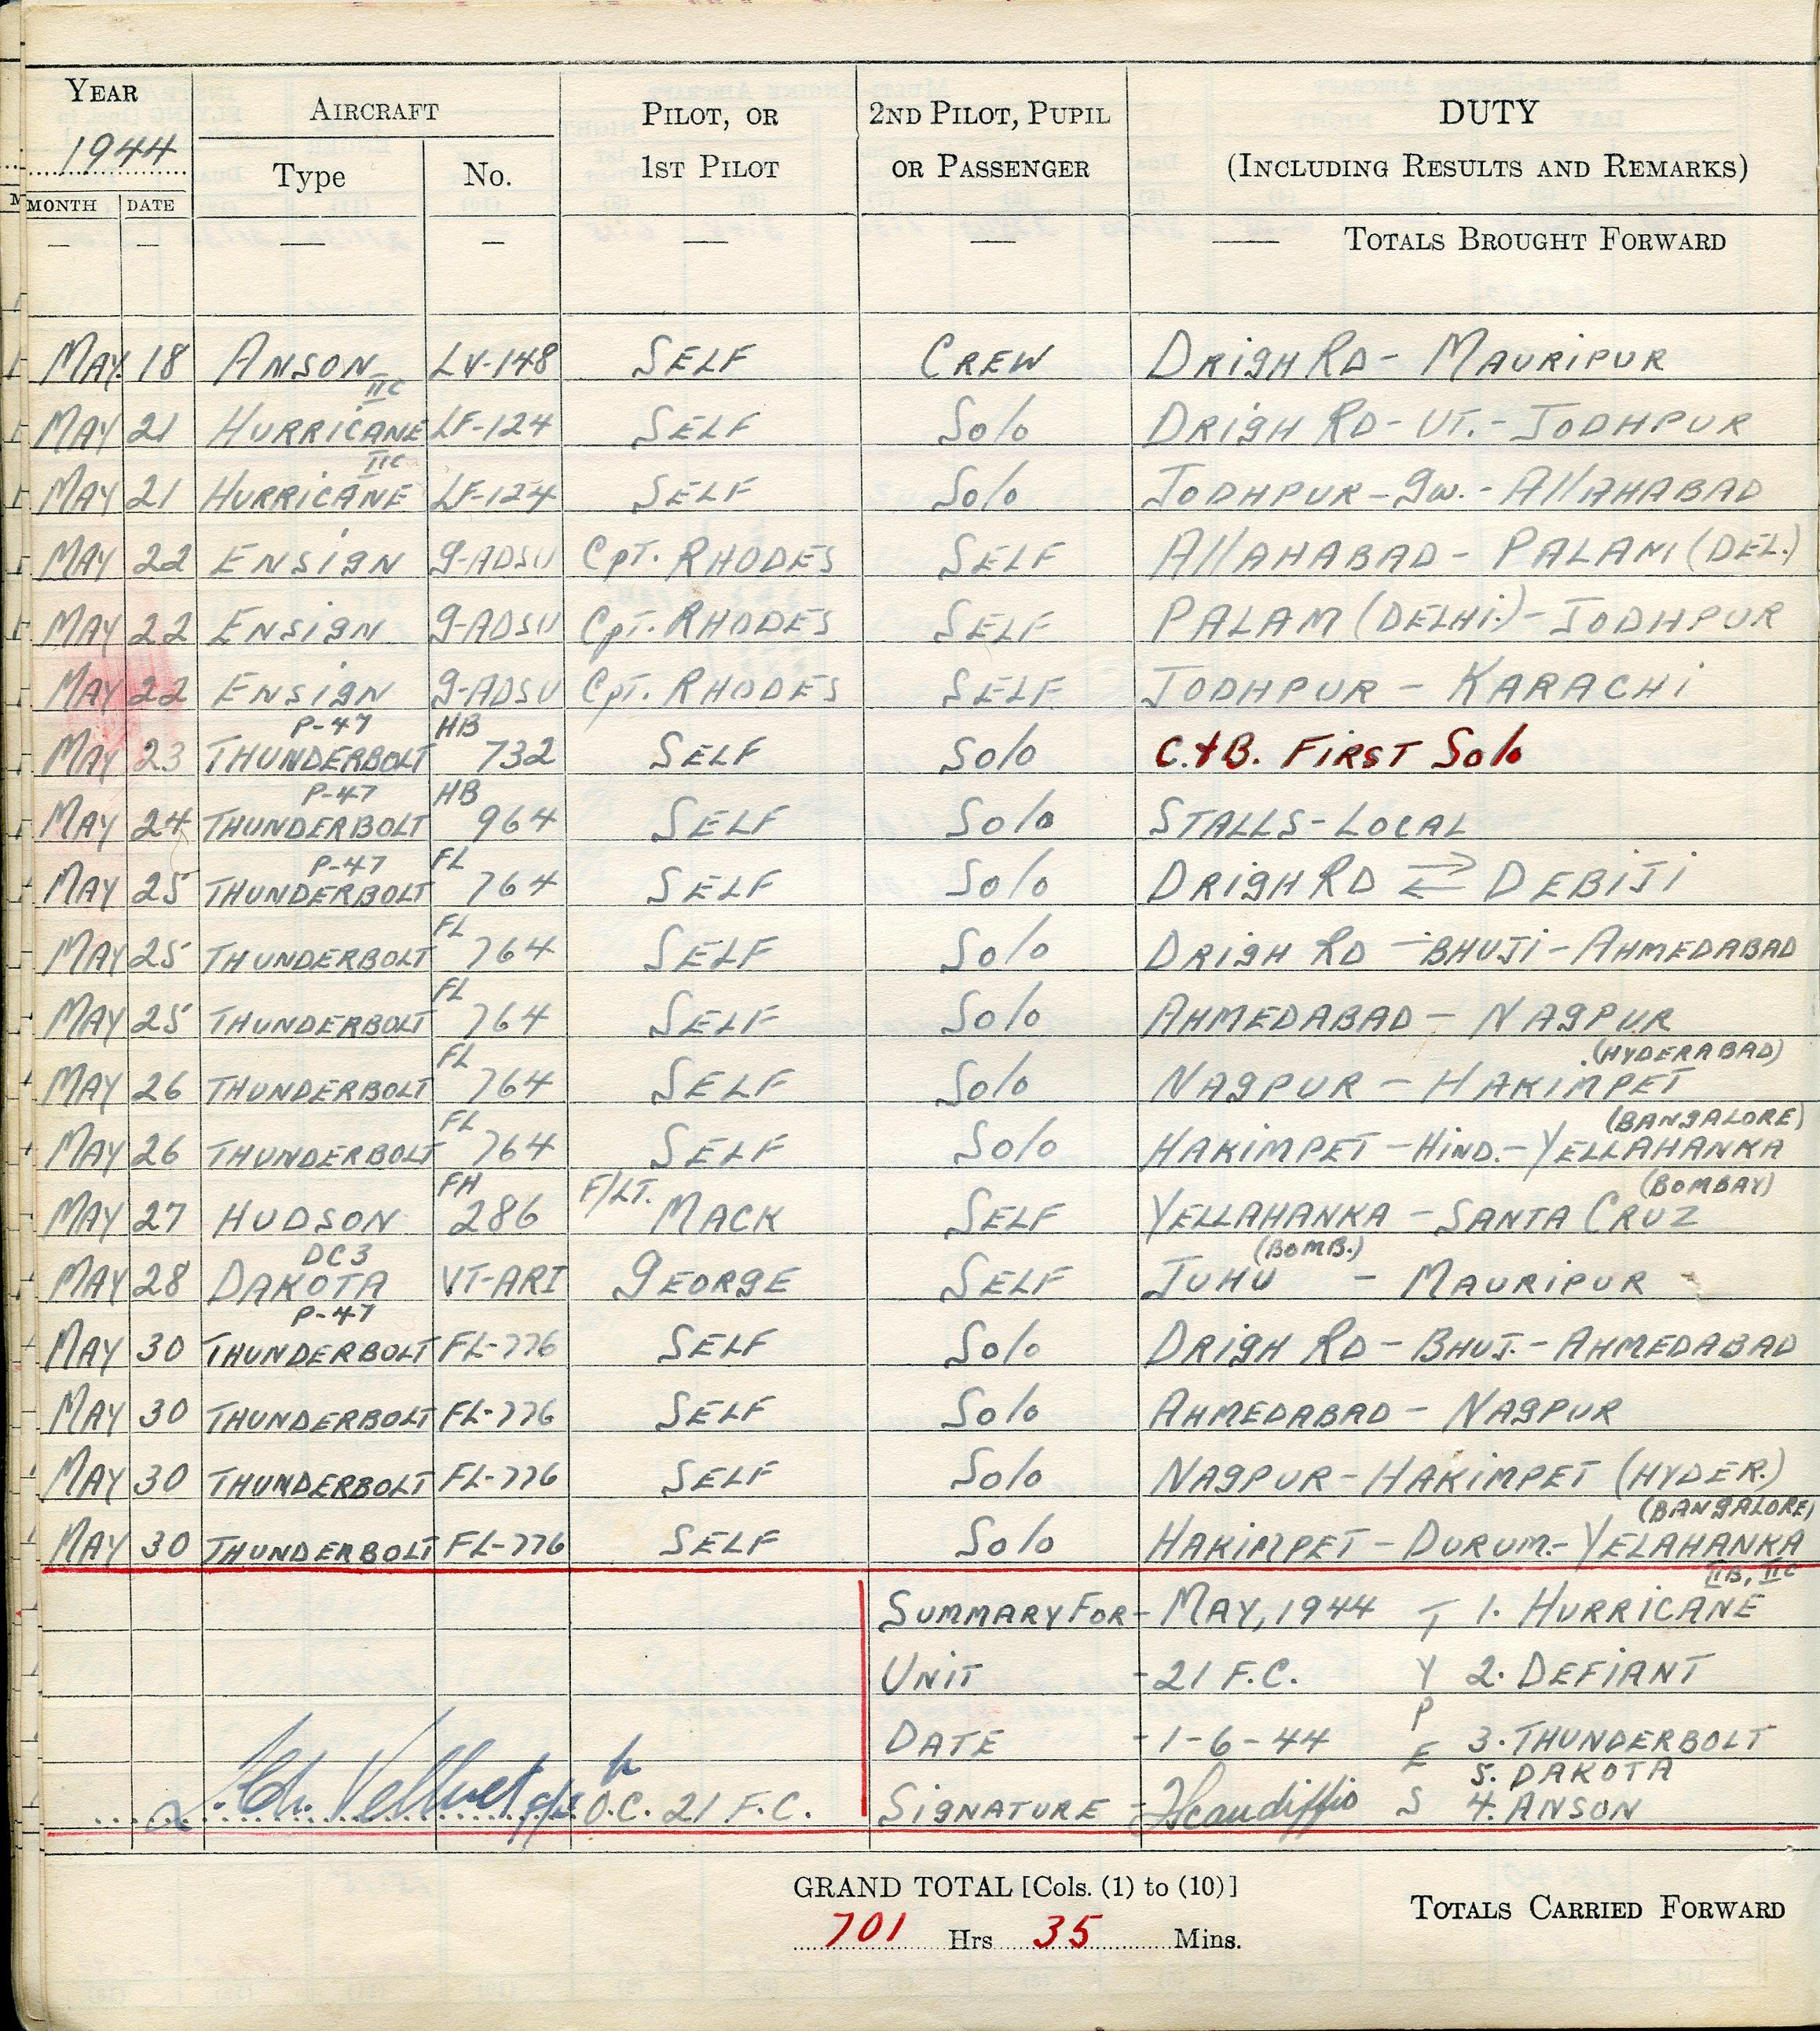 YEAR AIRCRAFT PILOT, OR 2ND PILOT, PUPIL DUTY
1944 Type No. 1ST PILOT OR PASSENGER (INCLUDING RESULTS AND REMARKS)
MONTH DATE
— — — — — — — TOTALS BROUGHT FORWARD
MAY. 18 ANSON LV-148 SELF CREW DRIGH RD - MAURIPUR
IIC
MAY 21 HURRICANE LF-124 SELF Solo DRIGH RD - UT. - JODHPUR
IIC
MAY 21 HURRICANE LF-124 SELF Solo JODHPUR - GW. - AllAHABAD
MAY 22 ENSIGN G-ADSU CPT. RHODES SELF AllAHABAD - PALAM (DEL.)
MAY 22 ENSIGN G-ADSU CPT. RHODES SELF PALAM (DELHI.) - JODHPUR
MAY 22 ENSIGN G-ADSU CPT. RHODES SELF JODHPUR - KARACHI
P-47 HB
MAY 23 THUNDERBOLT 732 SELF Solo C.&B. FIRST Solo
P-47 HB
MAY 24 THUNDERBOLT 964 SELF Solo STALLS - LOCAL
P-47 FL
MAY 25 THUNDERBOLT 764 SELF Solo DRIGH RD ⇄ DEBIJI
FL
MAY 25 THUNDERBOLT 764 SELF Solo DRIGH RD - BHUJI - AHMEDABAD
FL
MAY 25 THUNDERBOLT 764 SELF Solo AHMEDABAD - NAGPUR
FL (HYDERABAD)
MAY 26 THUNDERBOLT 764 SELF Solo NAGPUR - HAKIMPET
FL (BANGALORE)
MAY 26 THUNDERBOLT 764 SELF Solo HAKIMPET - HIND. - YELLAHANKA
FH F/LT. (BOMBAY)
MAY 27 HUDSON 286 MACK SELF YELLAHANKA - SANTA CRUZ
DC3 (BOMB.)
MAY 28 DAKOTA VT-ARI GEORGE SELF JUHU - MAURIPUR
P-47
MAY 30 THUNDERBOLT FL-776 SELF Solo DRIGH RD - BHUJ. - AHMEDABAD
MAY 30 THUNDERBOLT FL-776 SELF Solo AHMEDABAD - NAGPUR
MAY 30 THUNDERBOLT FL-776 SELF Solo NAGPUR - HAKIMPET (HYDER.)
(BANGALORE)
MAY 30 THUNDERBOLT FL-776 SELF Solo HAKIMPET - DURUM. - YELAHANKA
IIB, IIC
SUMMARY FOR - MAY, 1944 T 1. HURRICANE
UNIT - 21 F.C. Y 2. DEFIANT
P
DATE - 1-6-44 E 3. THUNDERBOLT
5. DAKOTA
O.C. 21 F.C. SIGNATURE - S 4. ANSON
GRAND TOTAL [Cols. (1) to (10)]
TOTALS CARRIED FORWARD
701 Hrs 35 Mins.